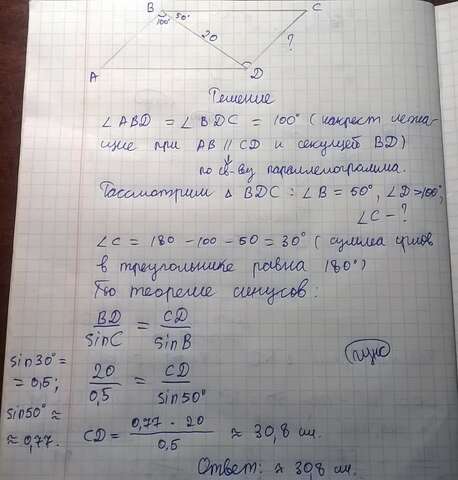 B C
100° 50°
20
?
A D
Решение
∠ABD = ∠BDC = 100° (накрест лежа-
щие при AB || CD и секущей BD)
по св-ву параллелограмма.
Рассмотрим △ BDC : ∠B = 50°, ∠D = 100°,
∠C - ?
∠C = 180 - 100 - 50 = 30° (сумма углов
в треугольнике равна 180°)
По теореме синусов:
BD/sinC = CD/sinB
sin30° =
= 0,5;
20/0,5 = CD/sin50°
sin50° ≈
≈ 0,77.
CD = 0,77 · 20/0,5 ≈ 30,8 см.
Ответ: ≈ 30,8 см.